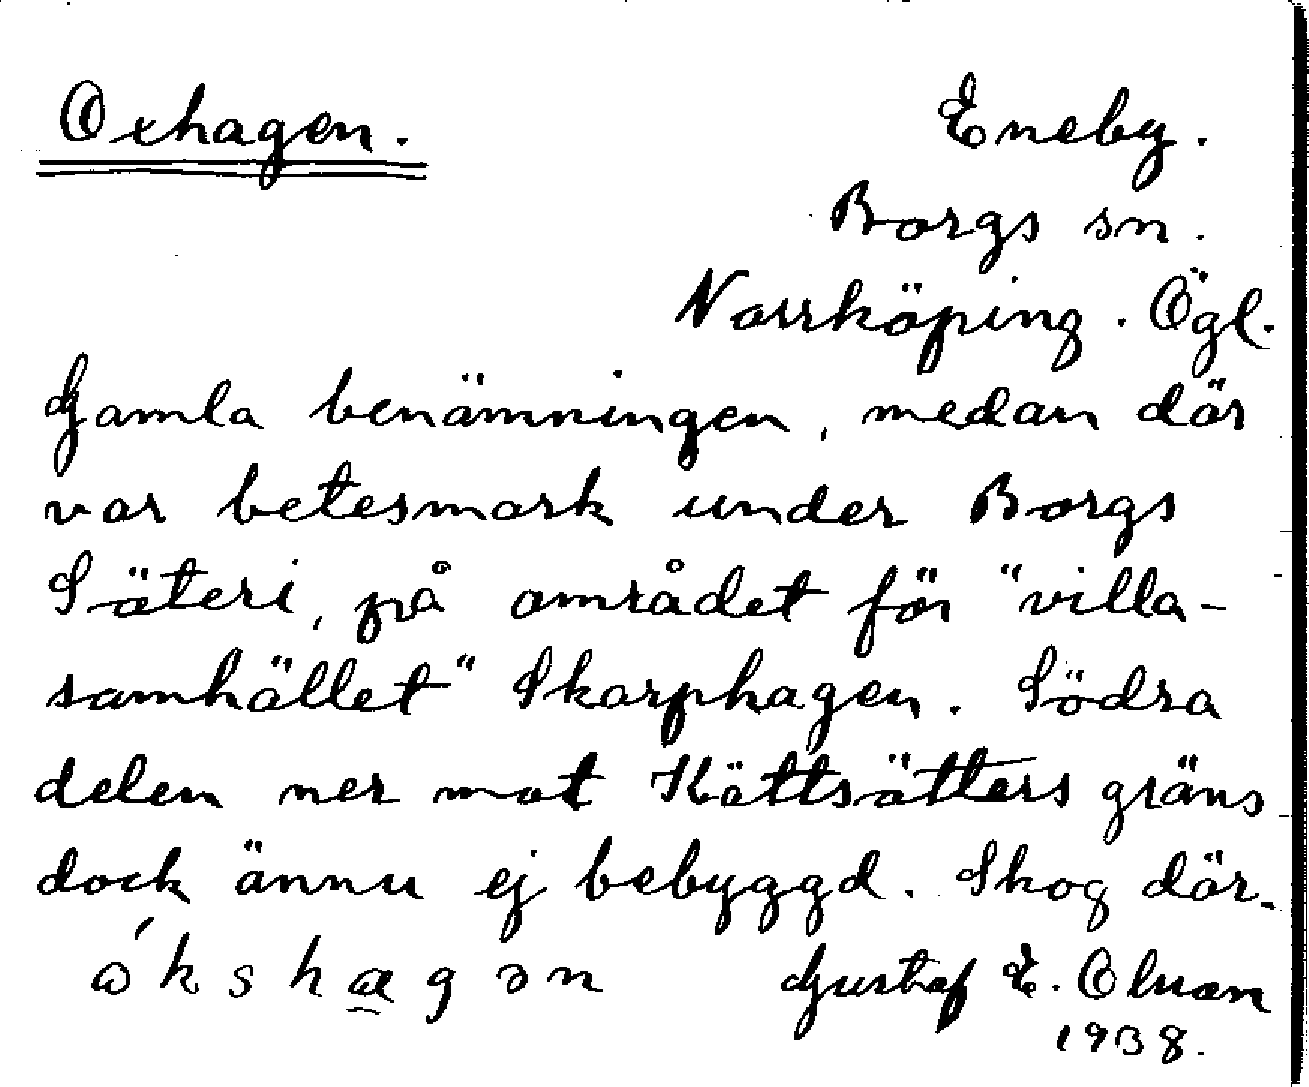 Oxhagen.
Eneby.
Borgs sn.
Norrköping. Ögl.
Gamla benämningen, medan där
var betesmark under Borgs
Säteri, på området för "villa-
samhället" Skarphagen. Södra
delen ner mot Kättsätters gräns
dock ännu ej bebyggd. Skog där.
ókshagən Gustaf E. Olsson
1938.